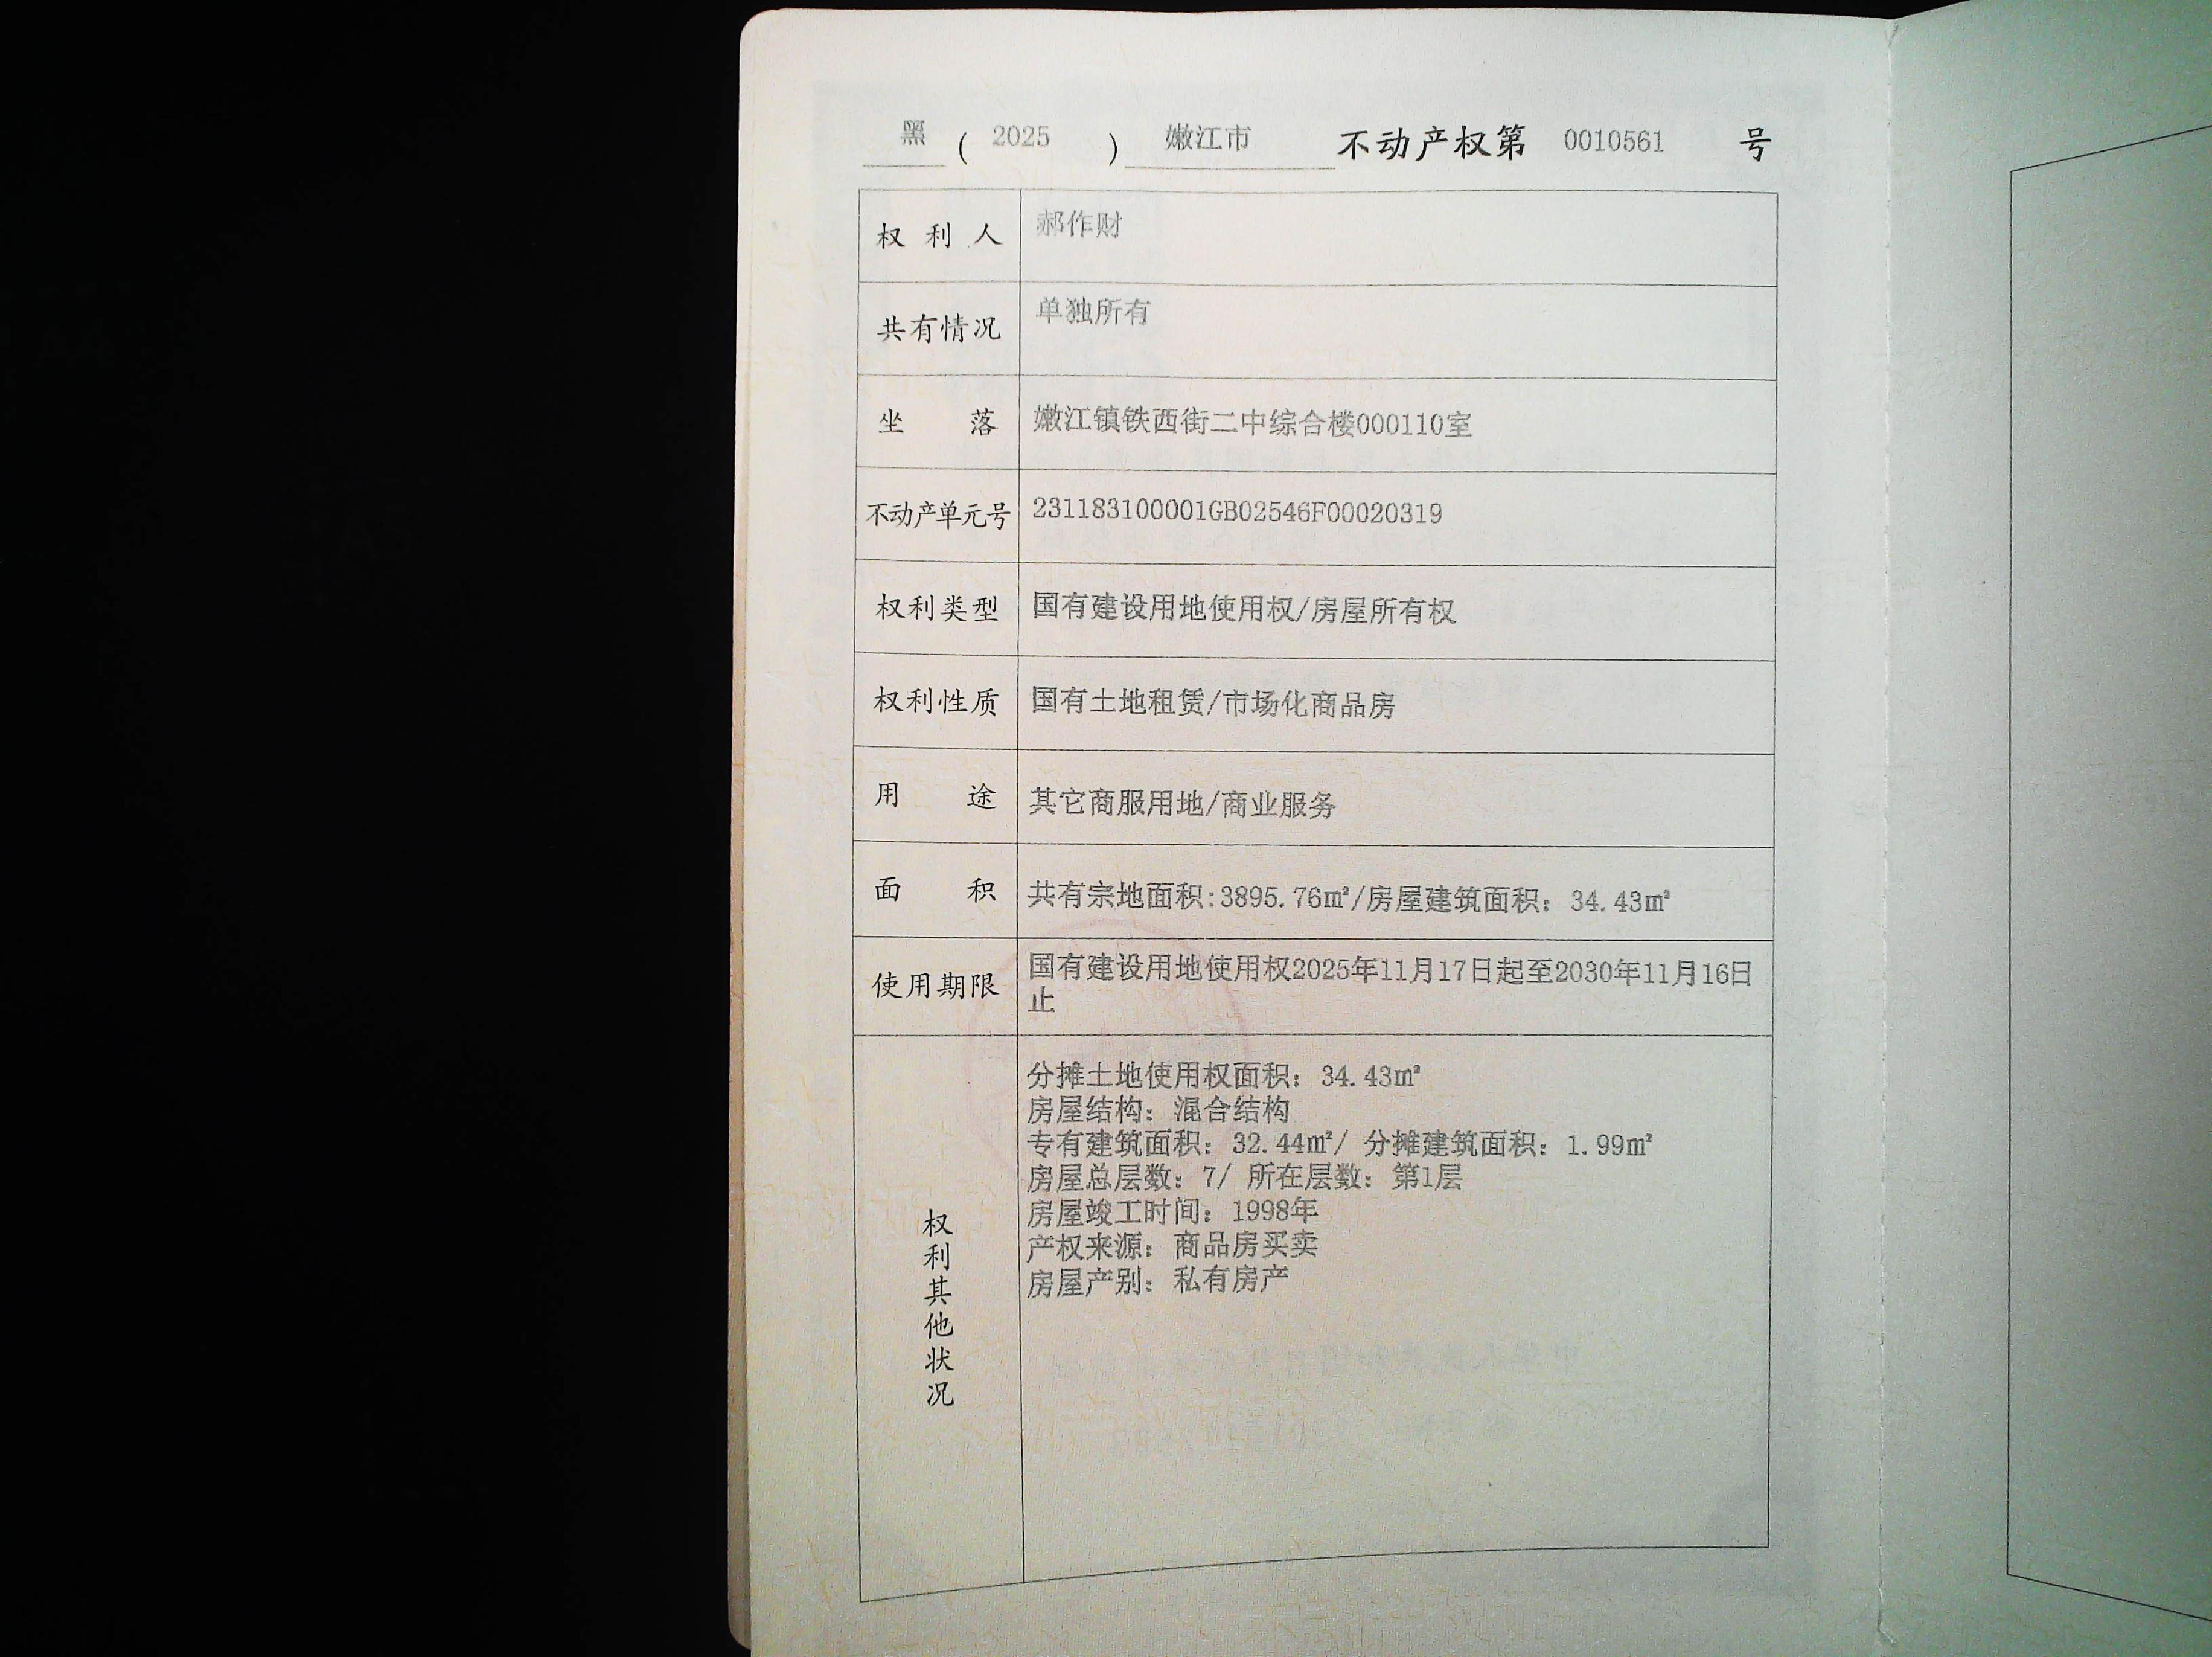 黑 ( 2025 ) 嫩江市 不动产权第 0010561 号
权利人 郝作财
共有情况 单独所有
坐落 嫩江镇铁西街二中综合楼000110室
不动产单元号 231183100001GB02546F00020319
权利类型 国有建设用地使用权/房屋所有权
权利性质 国有土地租赁/市场化商品房
用途 其它商服用地/商业服务
面积 共有宗地面积:3895.76㎡/房屋建筑面积：34.43㎡
使用期限 国有建设用地使用权2025年11月17日起至2030年11月16日
止
权利其他状况
分摊土地使用权面积：34.43㎡
房屋结构：混合结构
专有建筑面积：32.44㎡/ 分摊建筑面积：1.99㎡
房屋总层数：7/ 所在层数：第1层
房屋竣工时间：1998年
产权来源：商品房买卖
房屋产别：私有房产